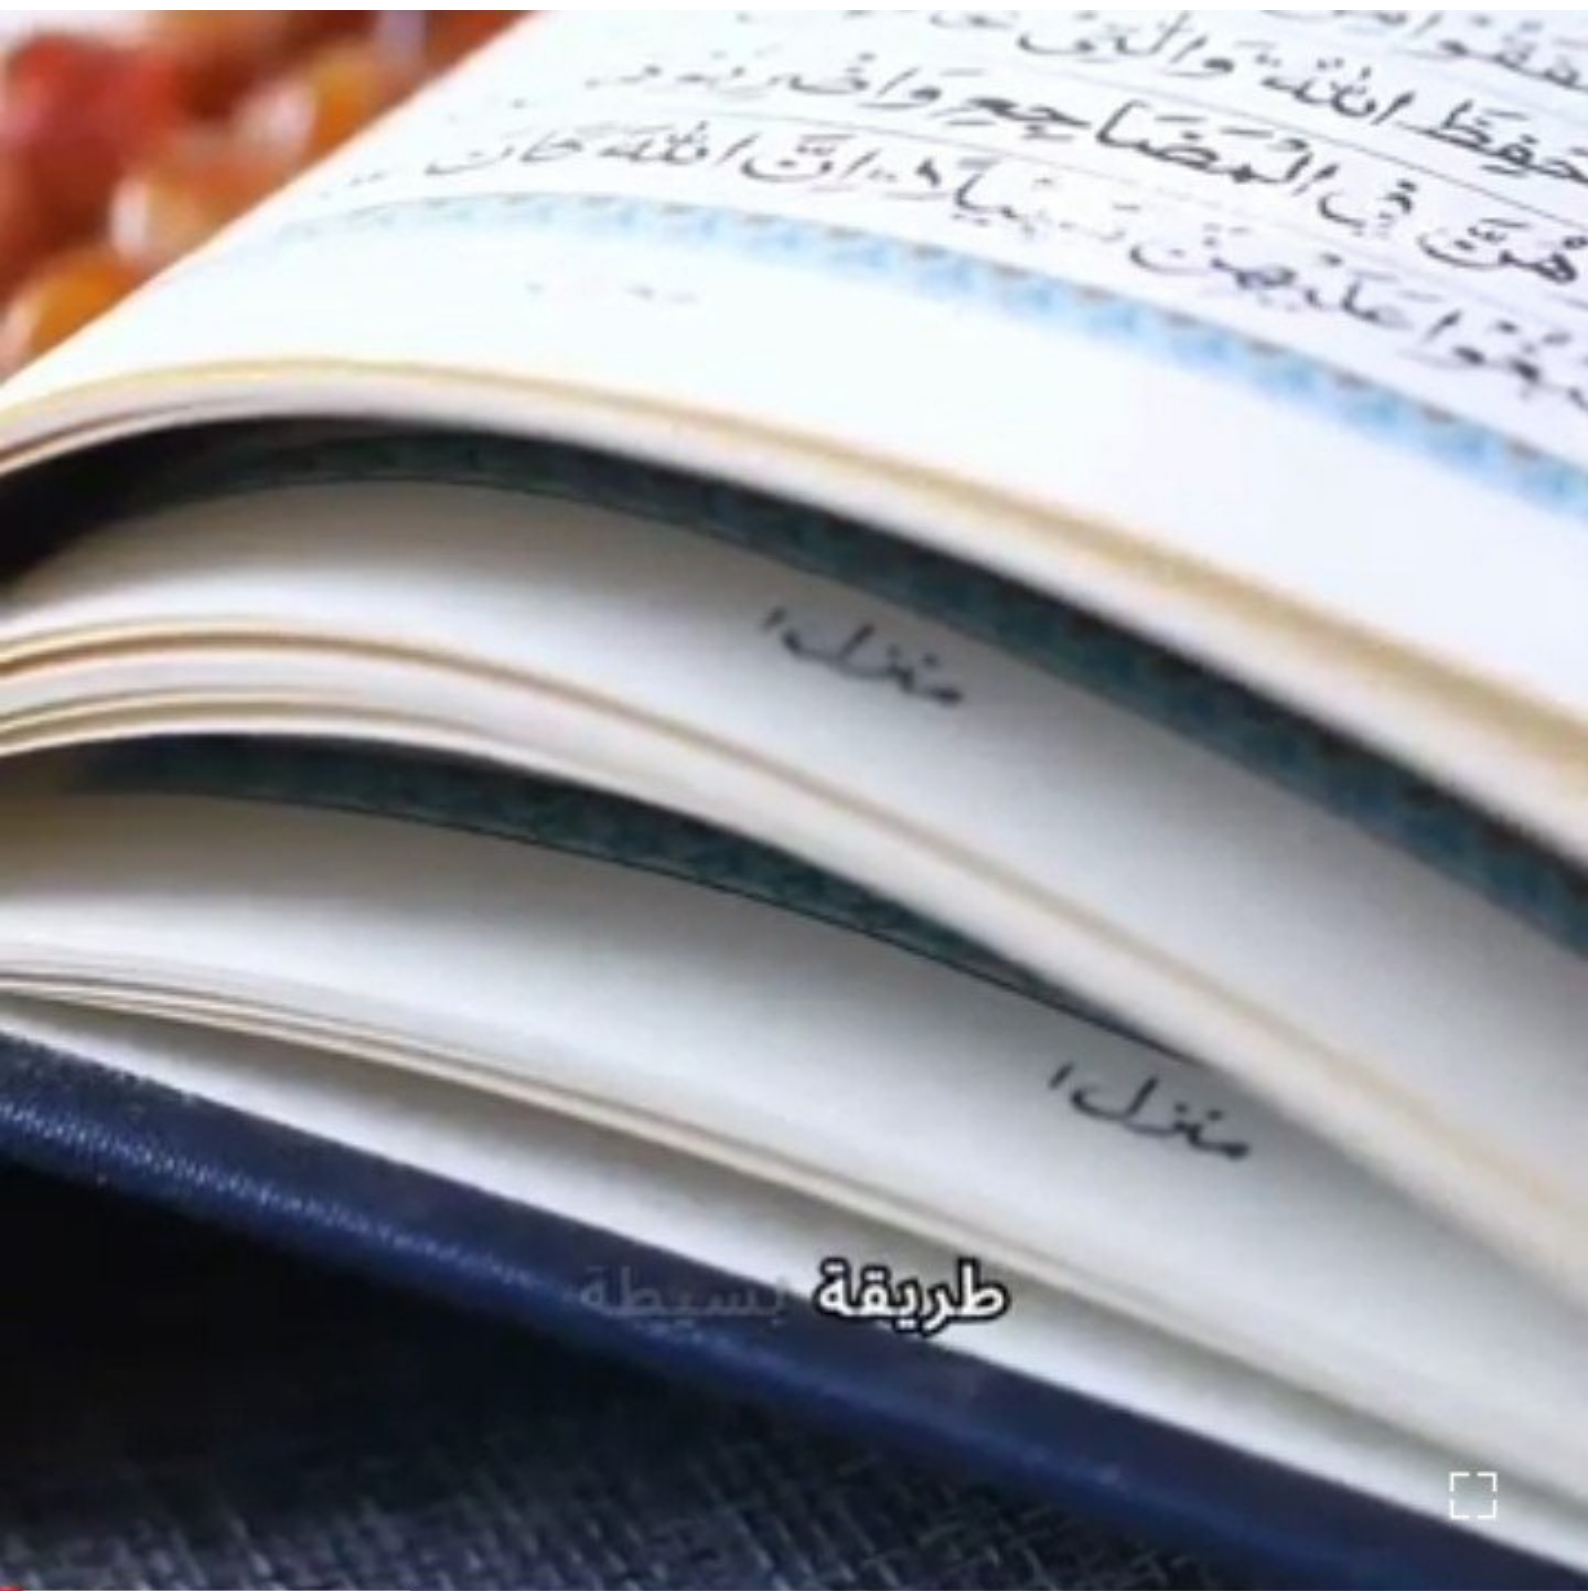 حَفِظَ اللّٰهُ ؕ وَالّٰتِیْ
هُنَّ فِی الْمَضَاجِعِ وَاضْرِبُوْ
تَبْغُوْا عَلَیْهِنَّ سَبِیْلًا ؕ اِنَّ اللّٰهَ كَانَ
منزل ١
منزل ١
طريقة بسيطة